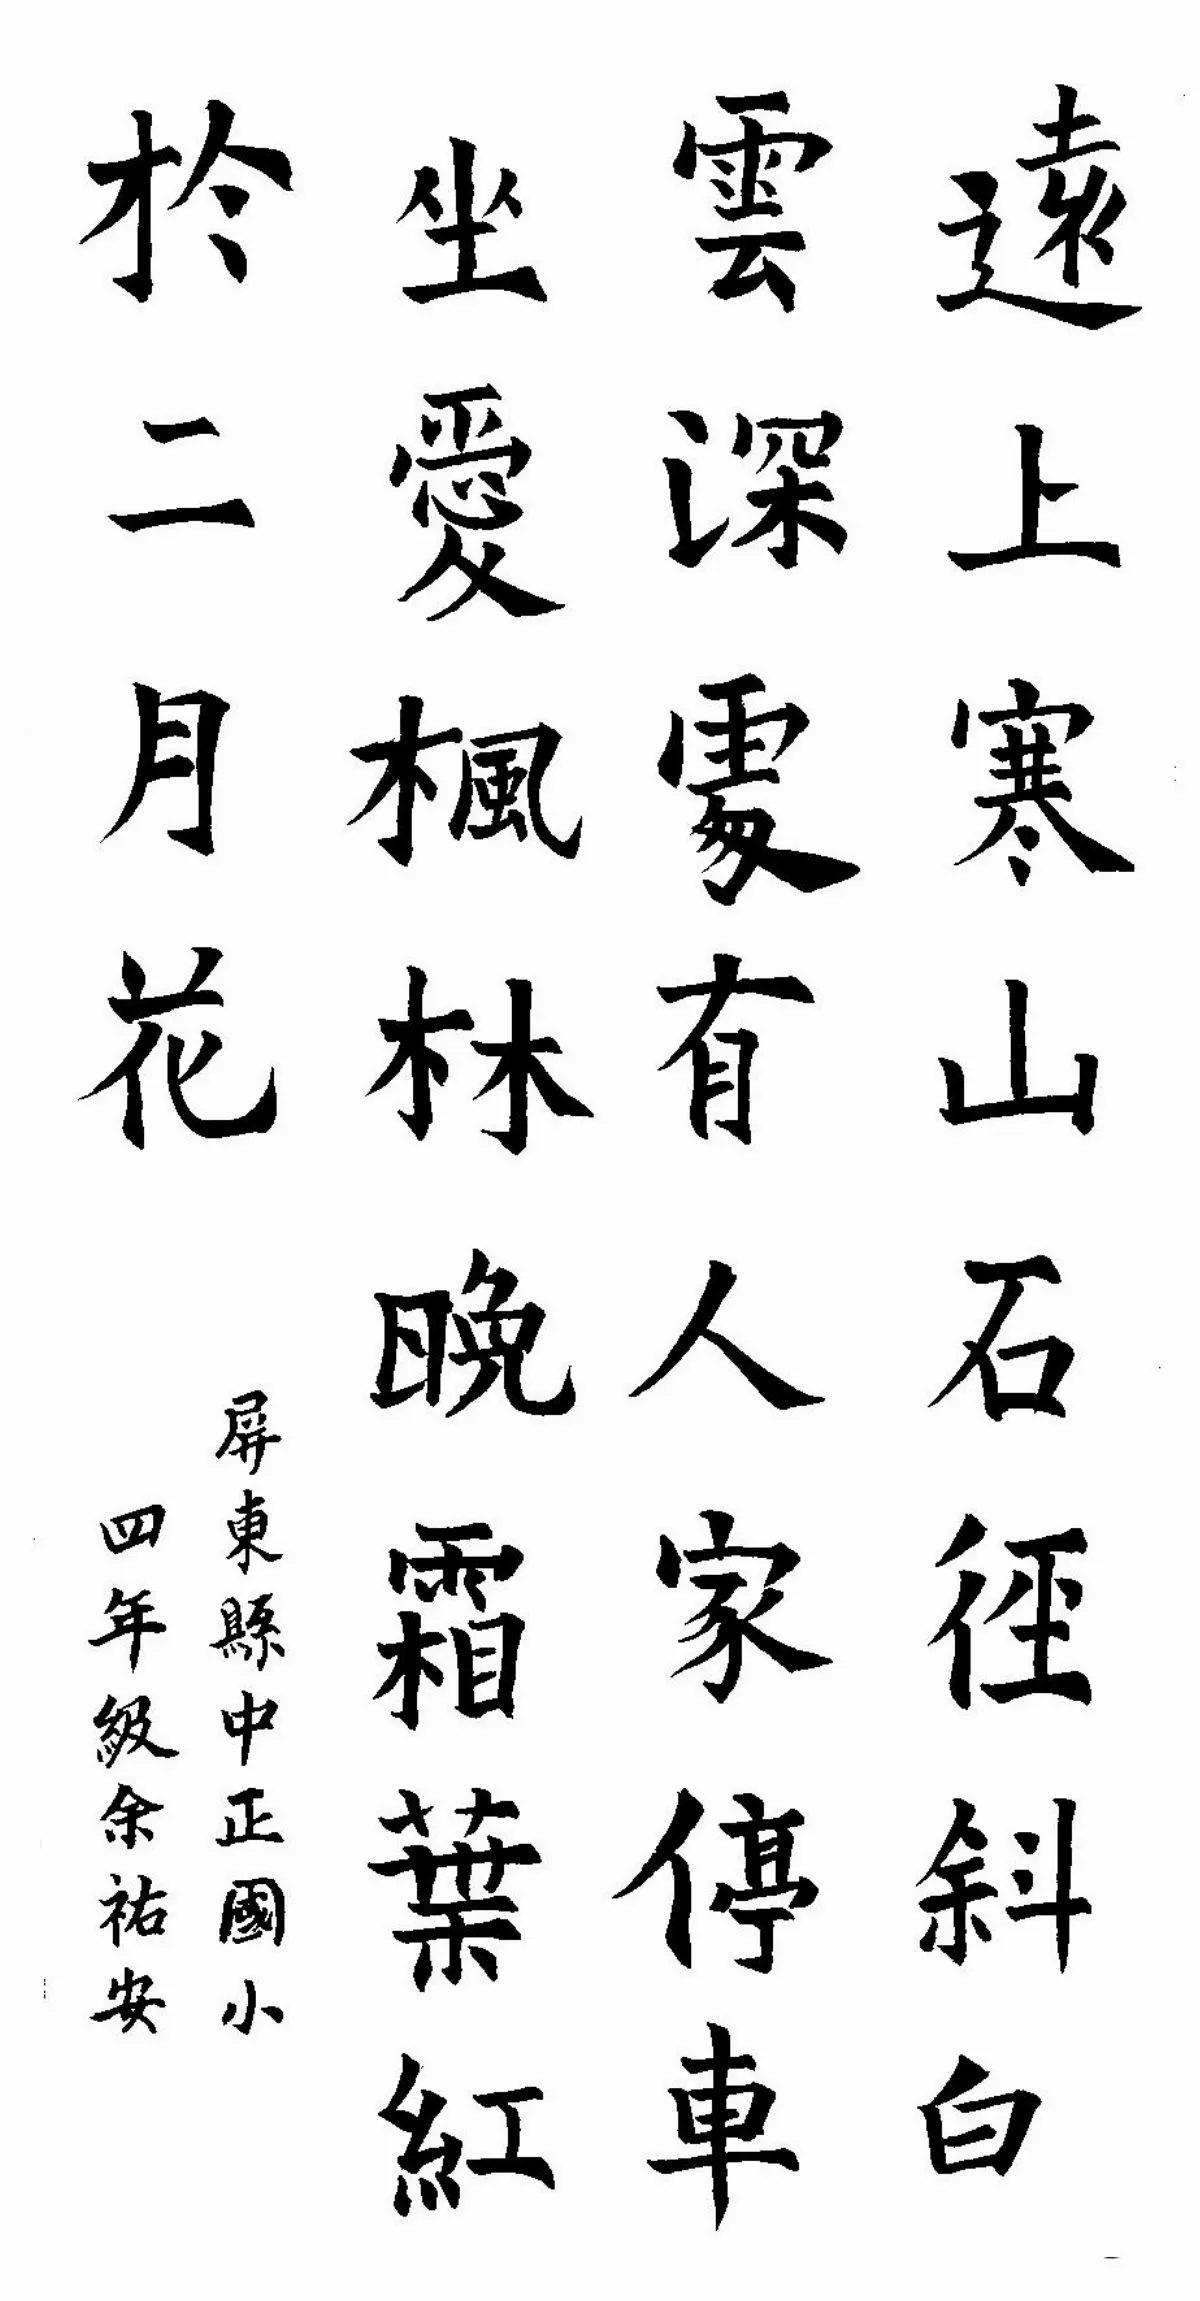 遠上寒山石徑斜白
雲深處有人家停車
坐愛楓林晚霜葉紅
於二月花
屏東縣中正國小
四年級余祐安